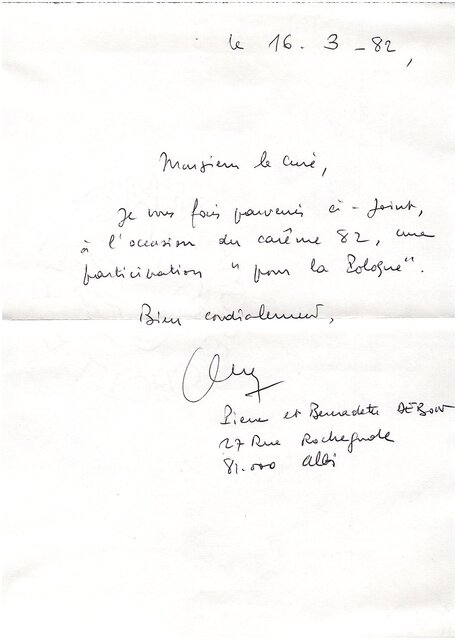 le 16. 3 - 82,
Monsieur le Curé,
Je vous fais parvenir ci-joint,
à l'occasion du carême 82, une
participation "pour la Pologne".
Bien cordialement,
Pierre et Bernadette
27 Rue Rochegude
81.000 Albi